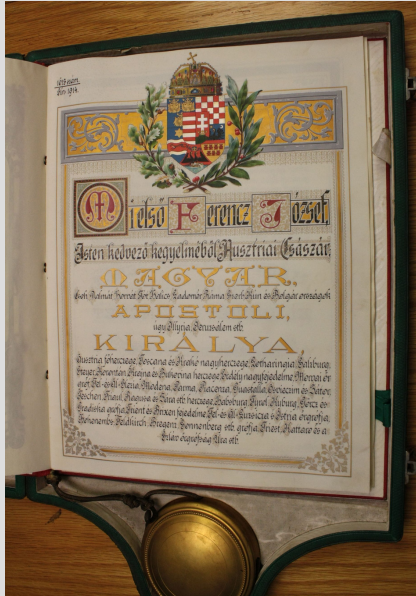 Mi első Ferencz József,
Isten kedvező kegyelméből Ausztriai Császár,
MAGYAR,
Cseh, Dalmát, Horvát, Tót, Halics, Ladomér, Ráma, Szerb, Kún és Bolgár országok
APOSTOLI,
úgy Illyria, Jerusalem stb.
KIRÁLYA,
Ausztria főherczege, Toscana és Krakó nagyherczege, Lotharingia, Salzburg,
Steyer, Korontán, Krajna és Bukovina herczege, Erdély nagyfejedelme, Morvai őr-
gróf, Fel- és Al-Szilézia, Modena, Parma, Piacenza, Guastalla, Osviecim és Zator,
Teschen, Friaul, Ragusa és Zára stb. herczege, Habsburg, Tirol, Kyburg, Görcz és
Gradiska grófja, Trient és Brixen fejedelme, Fel- és Al-Luzsicza és Istria őrgrófja,
Hohenembs, Feldkirch, Bregenz, Sonnenberg stb. grófja, Triest, Kattaro és a